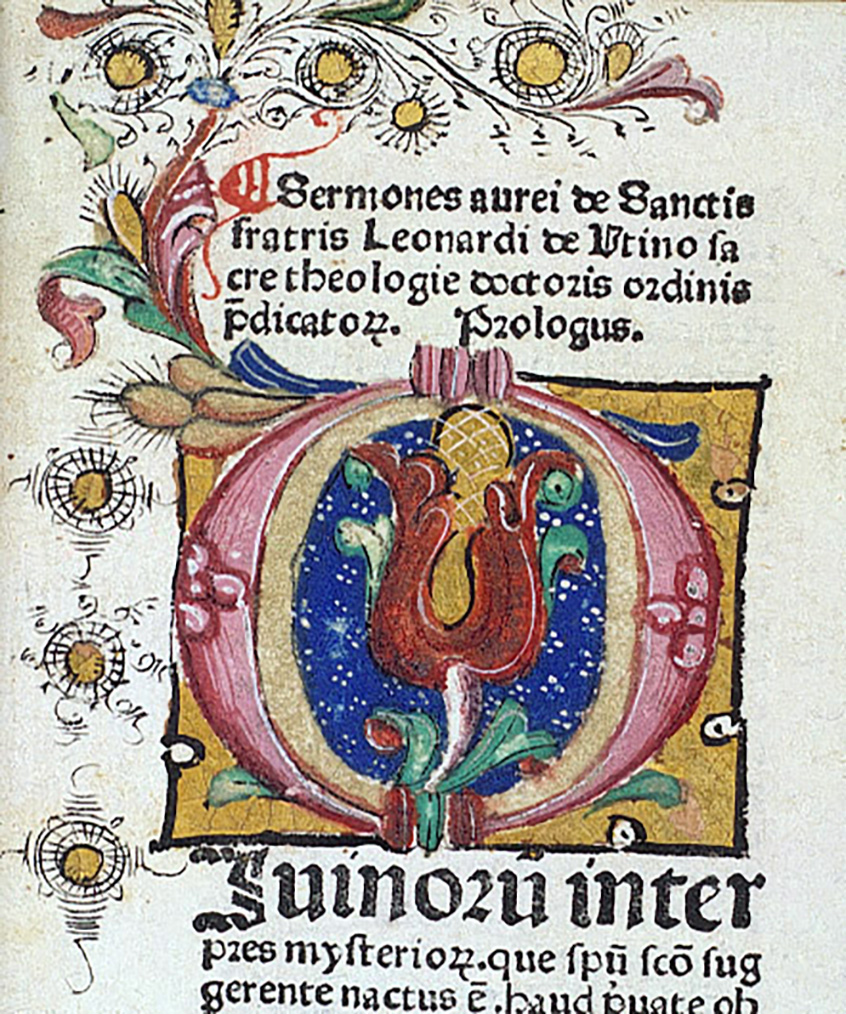 ¶ Sermones aurei de Sanctis
fratris Leonardi de Vtino sa
cre theologie doctoris ordinis
p̄dicatoꝝ. Prologus.
Iuinoꝛū inter
pres mysterioꝝ. que spū scō sug
gerente nactus ē. haud p̱uate ob